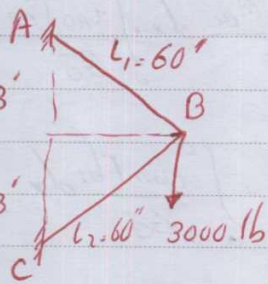 A
L₁=60"
B
3'
3'
L₂=60"
3000 lb
C